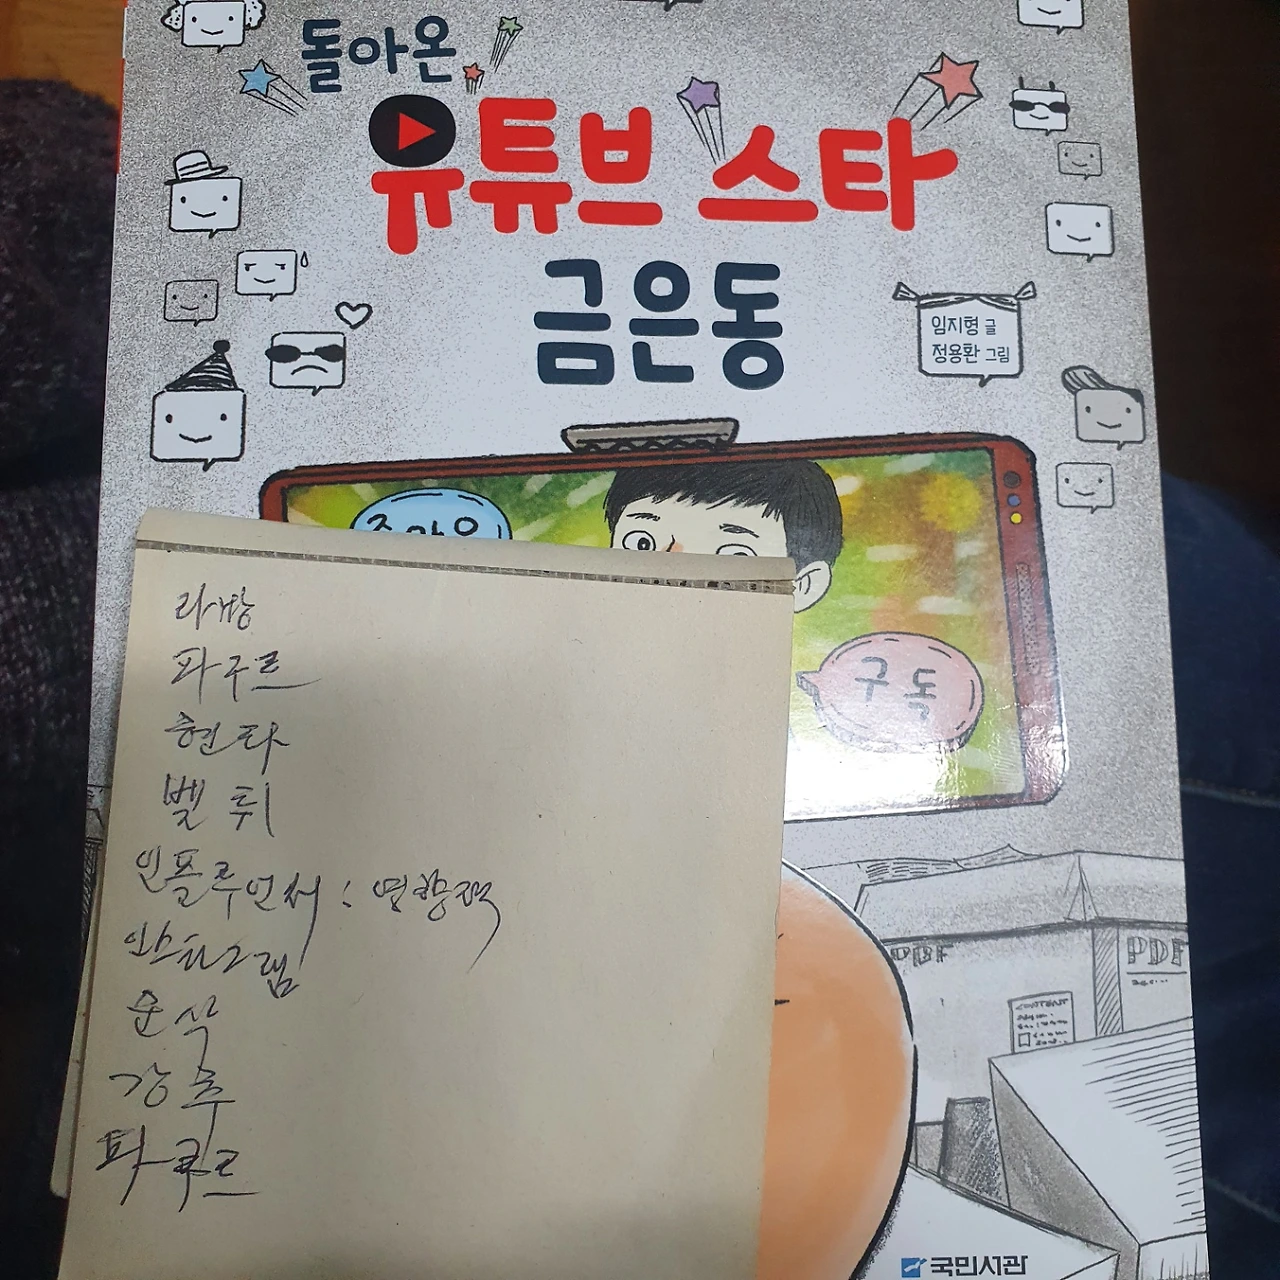 돌아온
유튜브 스타
금은동
임지형 글
정용환 그림
구독
라방
파구르
현탸
벨튀
인플루언서 : 영향력
인스타그램
순삭
강추
파쿠르
PDF
PDF
CONTENT
국민서관